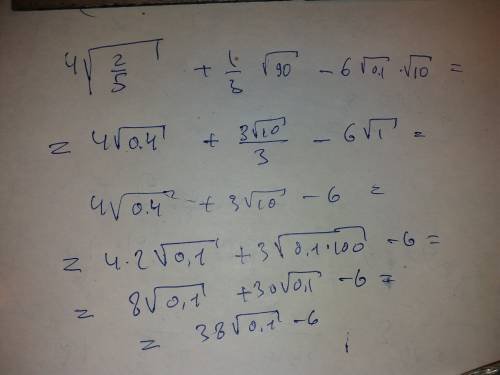 4√(2/5) + 1/3 √90 − 6√0,1 · √10 =
= 4√0.4 + 3√10/3 − 6√1 =
4√0.4 + 3√10 − 6 =
= 4·2√0,1 + 3√0,1·100 − 6 =
= 8√0,1 + 30√0,1 − 6 =
= 38√0,1 − 6